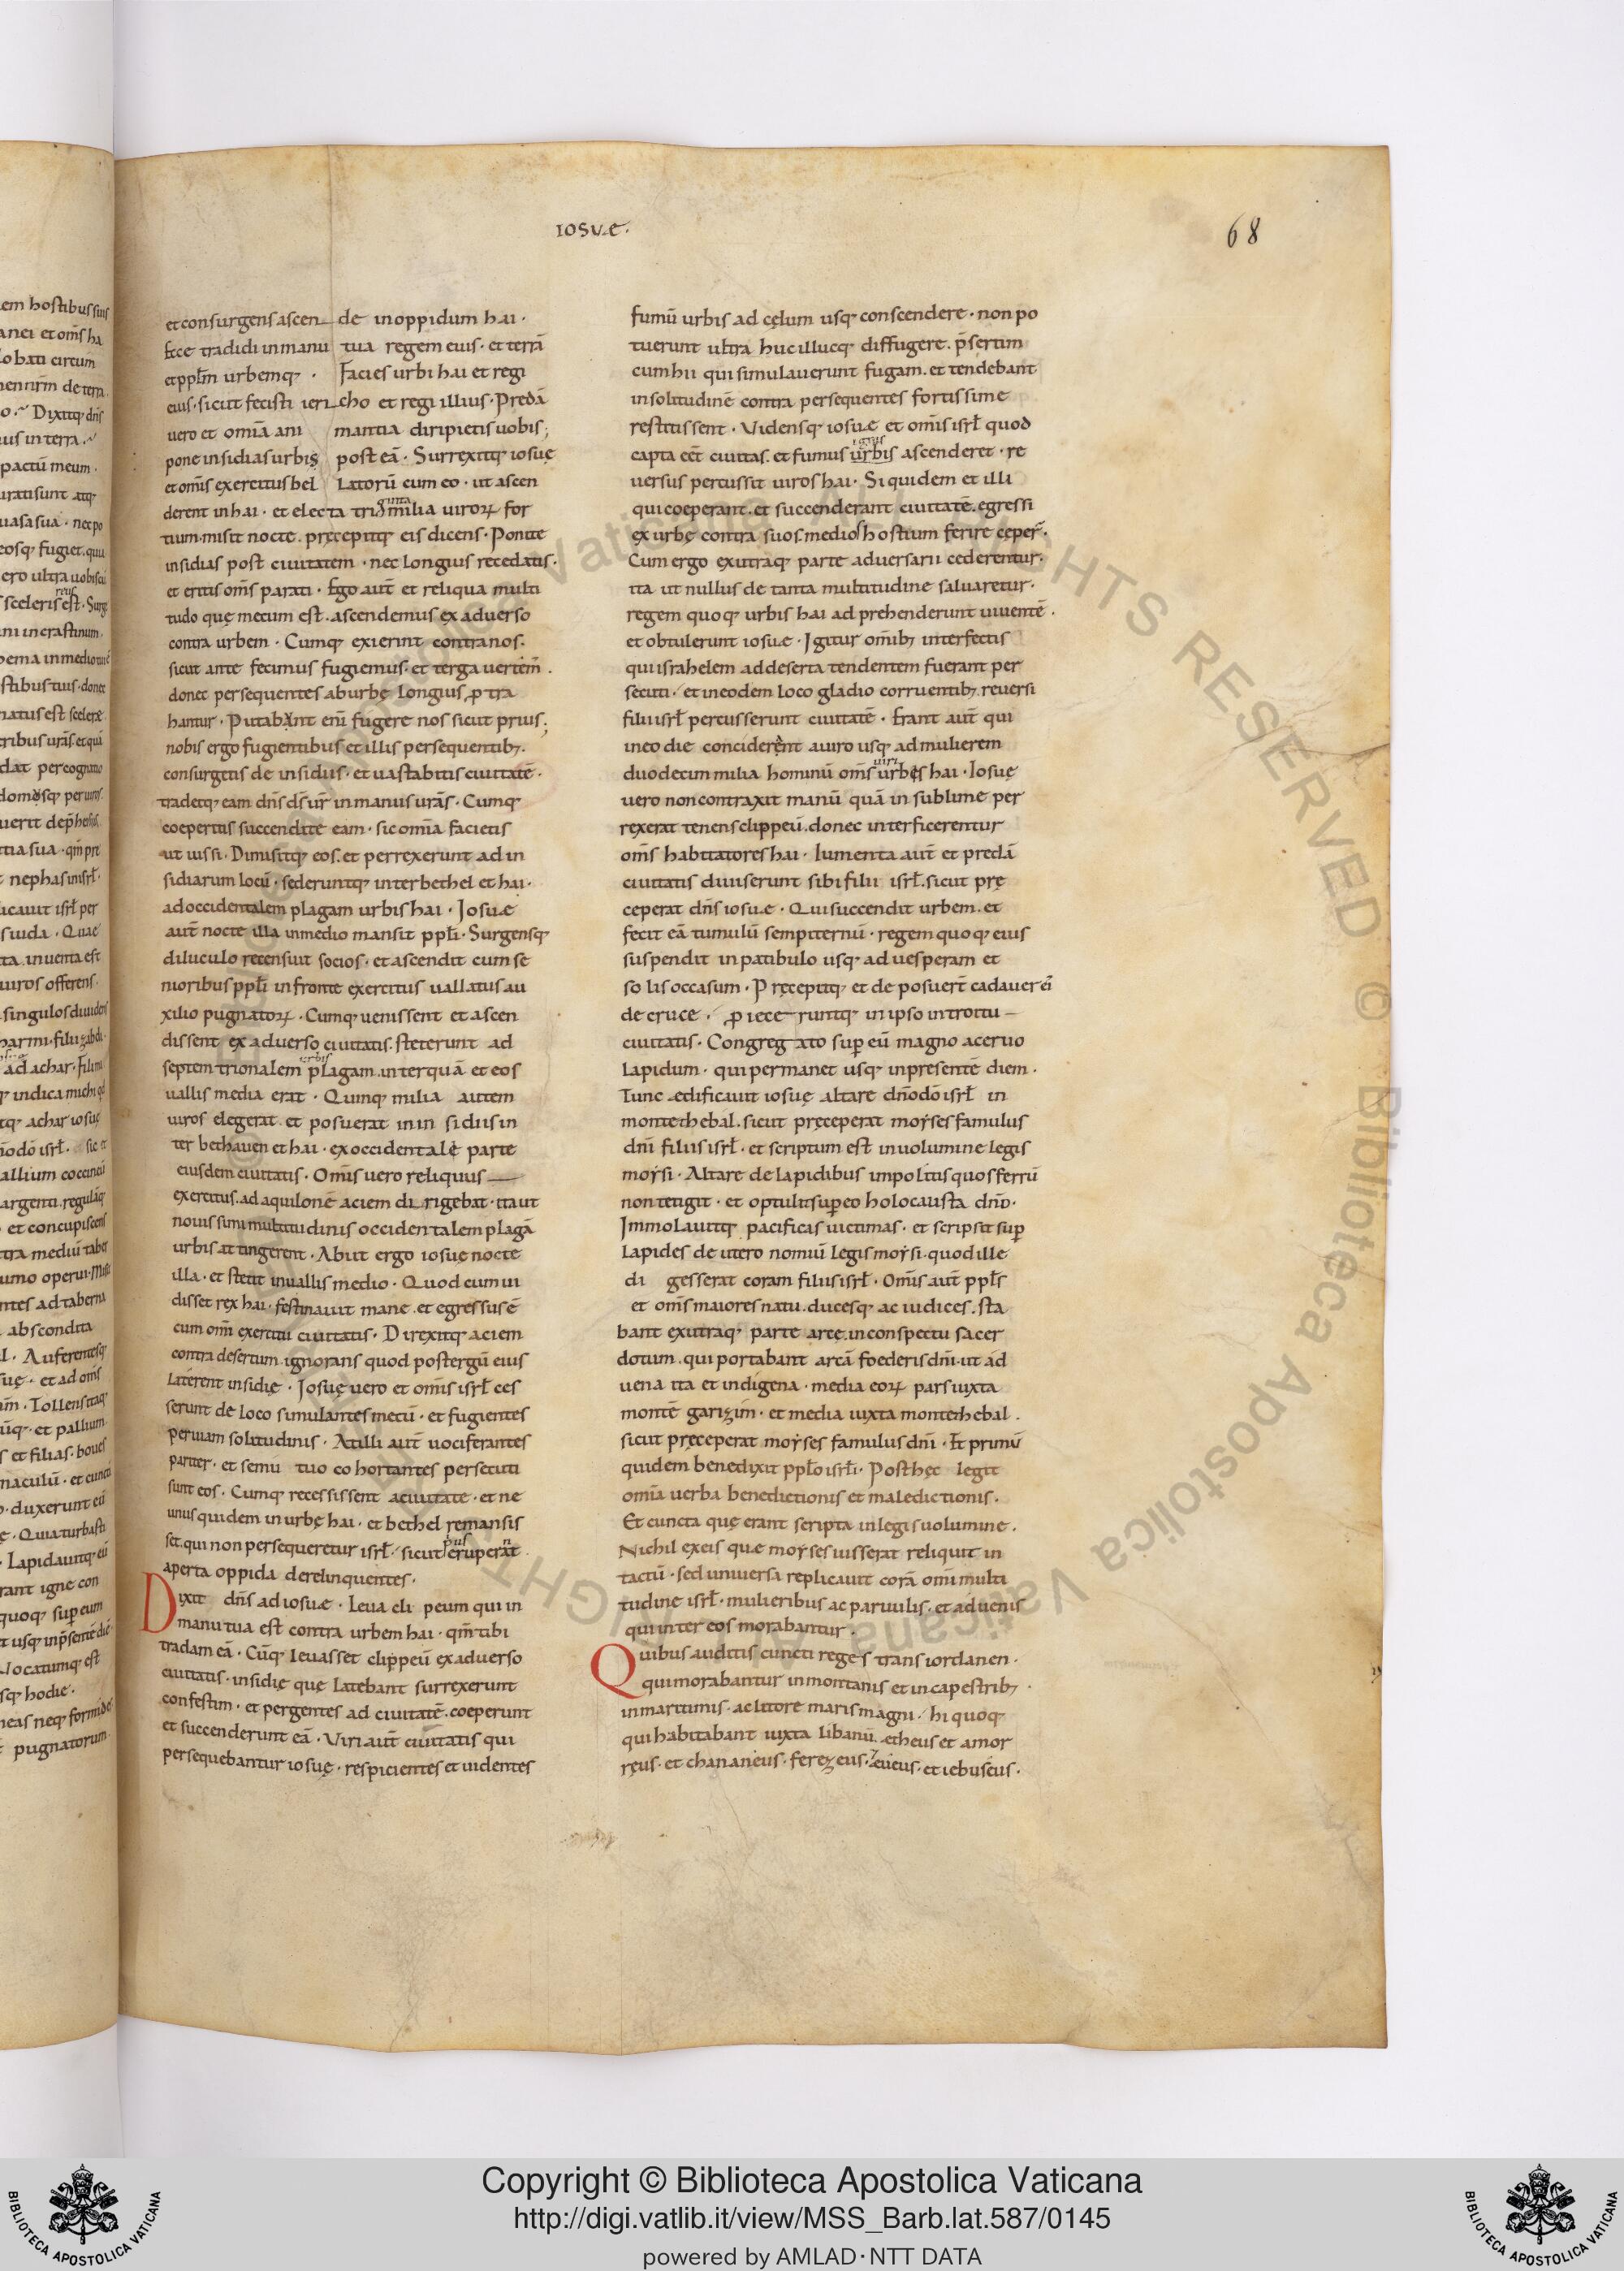 IOSVE.
68
et consurgens ascende in oppidum hai.
Ecce tradidi in manu tua regem eius. et terrā
et pplm̄ urbemq;. Facies urbi hai et regi
eius. sicut fecisti iericho et regi illius. Predā
uero et omīa animantia diripietis uobis;
pone insidias urbis post eā. Surrexitq; iosuę
et om̄s exercitus bellatorū cum eo. ut ascen
derent in hai. et electa triginta milia uiroꝝ for
tium. misit nocte. pręcepitq; eis dicens. Ponite
insidias post ciuitatem. nec longius recedatis.
et eritis om̄s parati. Ego aut̄ et reliqua multi
tudo quę mecum est. ascendemus ex aduerso
contra urbem. Cumq; exierint contra nos.
sicut ante fecimus fugiemus. et terga uertem̄.
donec persequentes ab urbę longius ꝓtra
hantur. Putabant eni̅ fugere nos sicut prius;
nobis ergo fugientibus et illis persequentib;.
consurgetis de insidiis. et uastabitis ciuitatē.
tradetq; eam dn̄s ds̄ ur̄ in manus uras̄. Cumq;
coeperitis succendite eam. sic omīa facietis
ut iussi. Dimisitq; eos. et perrexerunt ad in
sidiarum locū. sederuntq; inter bethel et hai.
ad occidentalem plagam urbis hai. Iosue
aut̄ nocte illa in medio mansit ppli̅. Surgensq;
diluculo recensuit socios. et ascendit cum se
nioribus ppli̅ in fronte exercitus uallatus au
xilio pugnatoꝝ. Cumq; uenissent et ascen
dissent ex aduerso ciuitatis. steterunt ad
septemtrionalem urbis plagam. inter quā et eos
uallis media erat. Quinq; milia autem
uiros elegerat et posuerat in insidiis in
ter bethauen et hai. ex occidentale parte
eiusdem ciuitatis. Om̄is uero reliquus
exercitus. ad aquilonē aciem dirigebat. ita ut
nouissimi multitudinis occidentalem plagā
urbis attingerent. Abiit ergo iosuę nocte
illa. et stetit in uallis medio. Quod cum ui
disset rex hai. festinauit mane. et egressus ē
cum omī exercitu ciuitatis. Direxitq; aciem
contra desertum. ignorans quod post ergū eius
laterent insidię. Iosuę uero et om̄is isrl̄ ces
serunt de loco simulantes metū. et fugientes
per uiam solitudinis. At illi aut̄ uociferantes
pariter. et semu tuo cohortantes persecuti
sunt eos. Cumq; recessissent a ciuitate. et ne
unus quidem in urbę hai. et bethel remansis
set. qui non persequeretur isrl̄. sicut eruperant
aperta oppida derelinquentes.
Dixit dn̄s ad iosue. Leua clipeum qui in
manu tua est contra urbem hai. qm̄ tibi
tradam eā. Cūq; leuasset clippeū ex aduerso
ciuitatis. insidię quę latebant surrexerunt
confestim. et pergentes ad ciuitatē. coeperunt
et succenderunt eā. Viri aut̄ ciuitatis qui
persequebantur iosuę. respicientes et uidentes
fumū urbis ad cęlum usq; conscendere. non po
tuerunt ultra huc illucq; diffugere. p̄sertim
cum hii qui simulauerunt fugam. et tendebant
in solitudinē contra persequentes fortissime
restitissent. Vidensq; iosue et om̄is isrl̄ quod
capta eēt ciuitas. et fumus urbis ascenderet. re
uersus percussit uiros hai. Siquidem et illi
qui coeperant. et succenderant ciuitatē. egressi
ex urbę contra suos. medios hostium ferire ceper̄.
Cum ergo ex utraq; parte aduersarii cederentur.
ita ut nullus de tanta multitudine saluaretur.
regem quoq; urbis hai adprehenderunt uiuentē.
et obtulerunt iosue. Igitur omīb; interfectis
qui israhelem ad deserta tendentem fuerant per
secuti. et in eodem loco gladio corruentib; reuersi
filii isrl̄ percusserunt ciuitatē. Erant aut̄ qui
in eo die conciderent a uiro usq; ad mulierem
duodecim milia hominū om̄s uiri urbis hai. Iosuę
uero non contraxit manū quā in sublime per
rexerat tenens clippeū. donec interficerentur
om̄s habitatores hai. Iumenta aut̄ et predā
ciuitatis diuiserunt sibi filii isrl̄. sicut prę
ceperat dn̄s iosue. Qui succendit urbem. et
fecit eā tumulū sempiternū. regem quoq; eius
suspendit in patibulo usq; ad uesperam et
solis occasum. Pręcepitq; et deposuer̄t cadauer ei̅
de cruce. ꝓieceruntq; in ipso introitu
ciuitatis. Congregato sup̱ eū magno aceruo
lapidum. qui permanet usq; in presentē diem.
Tunc edificauit iosuę altare dn̄o dō isrl̄ in
monte hebal. sicut pręceperat moẏses famulus
dni̅ filiis isrl̄. et scriptum est in uolumine legis
moẏsi. Altare de lapidibus impolitis quos ferrū
non tetigit. et optulit sup̱ eo holocausta dn̄o.
Immolauitq; pacificas uictimas. et scripsit sup̱
lapides deuteronomiū legis moẏsi. quod ille
digesserat coram filiis isrl̄. Om̄is aut̄ ppls̄
et om̄s maiores natu. ducesq; ac iudices. sta
bant ex utraq; parte arce. in conspectu sacer
dotum. qui portabant arcā foederis dni̅. ut ad
uena ita et indigena. media eoꝝ pars iuxta
montē garizim. et media iuxta montem hebal.
sicut pręceperat moẏses famulus dni̅. Et primū
quidem benedixit ppl̄o isrl̄i. Post hęc legit
omīa uerba benedictionis et maledictionis.
Et cuncta quę erant scripta in legis uolumine.
Nichil ex eis que moẏses iusserat reliquit in
tactū. sed uniuersa replicauit corā omī multi
tudine isrl̄. mulieribus ac paruulis. et aduenis
qui inter eos morabantur.
Quibus auditis cuncti reges trans iordanen.
qui morabantur in montanis et in capestrib;.
in maritimis. ac litore maris magni. hi quoq;
qui habitabant iuxta libanū. etheus et amor
ręus. et chananeus. ferezeus. eueus. et iebuseus.
Copyright © Biblioteca Apostolica Vaticana
http://digi.vatlib.it/view/MSS_Barb.lat.587/0145
powered by AMLAD·NTT DATA
BIBLIOTECA APOSTOLICA VATICANA
BIBLIOTECA APOSTOLICA VATICANA